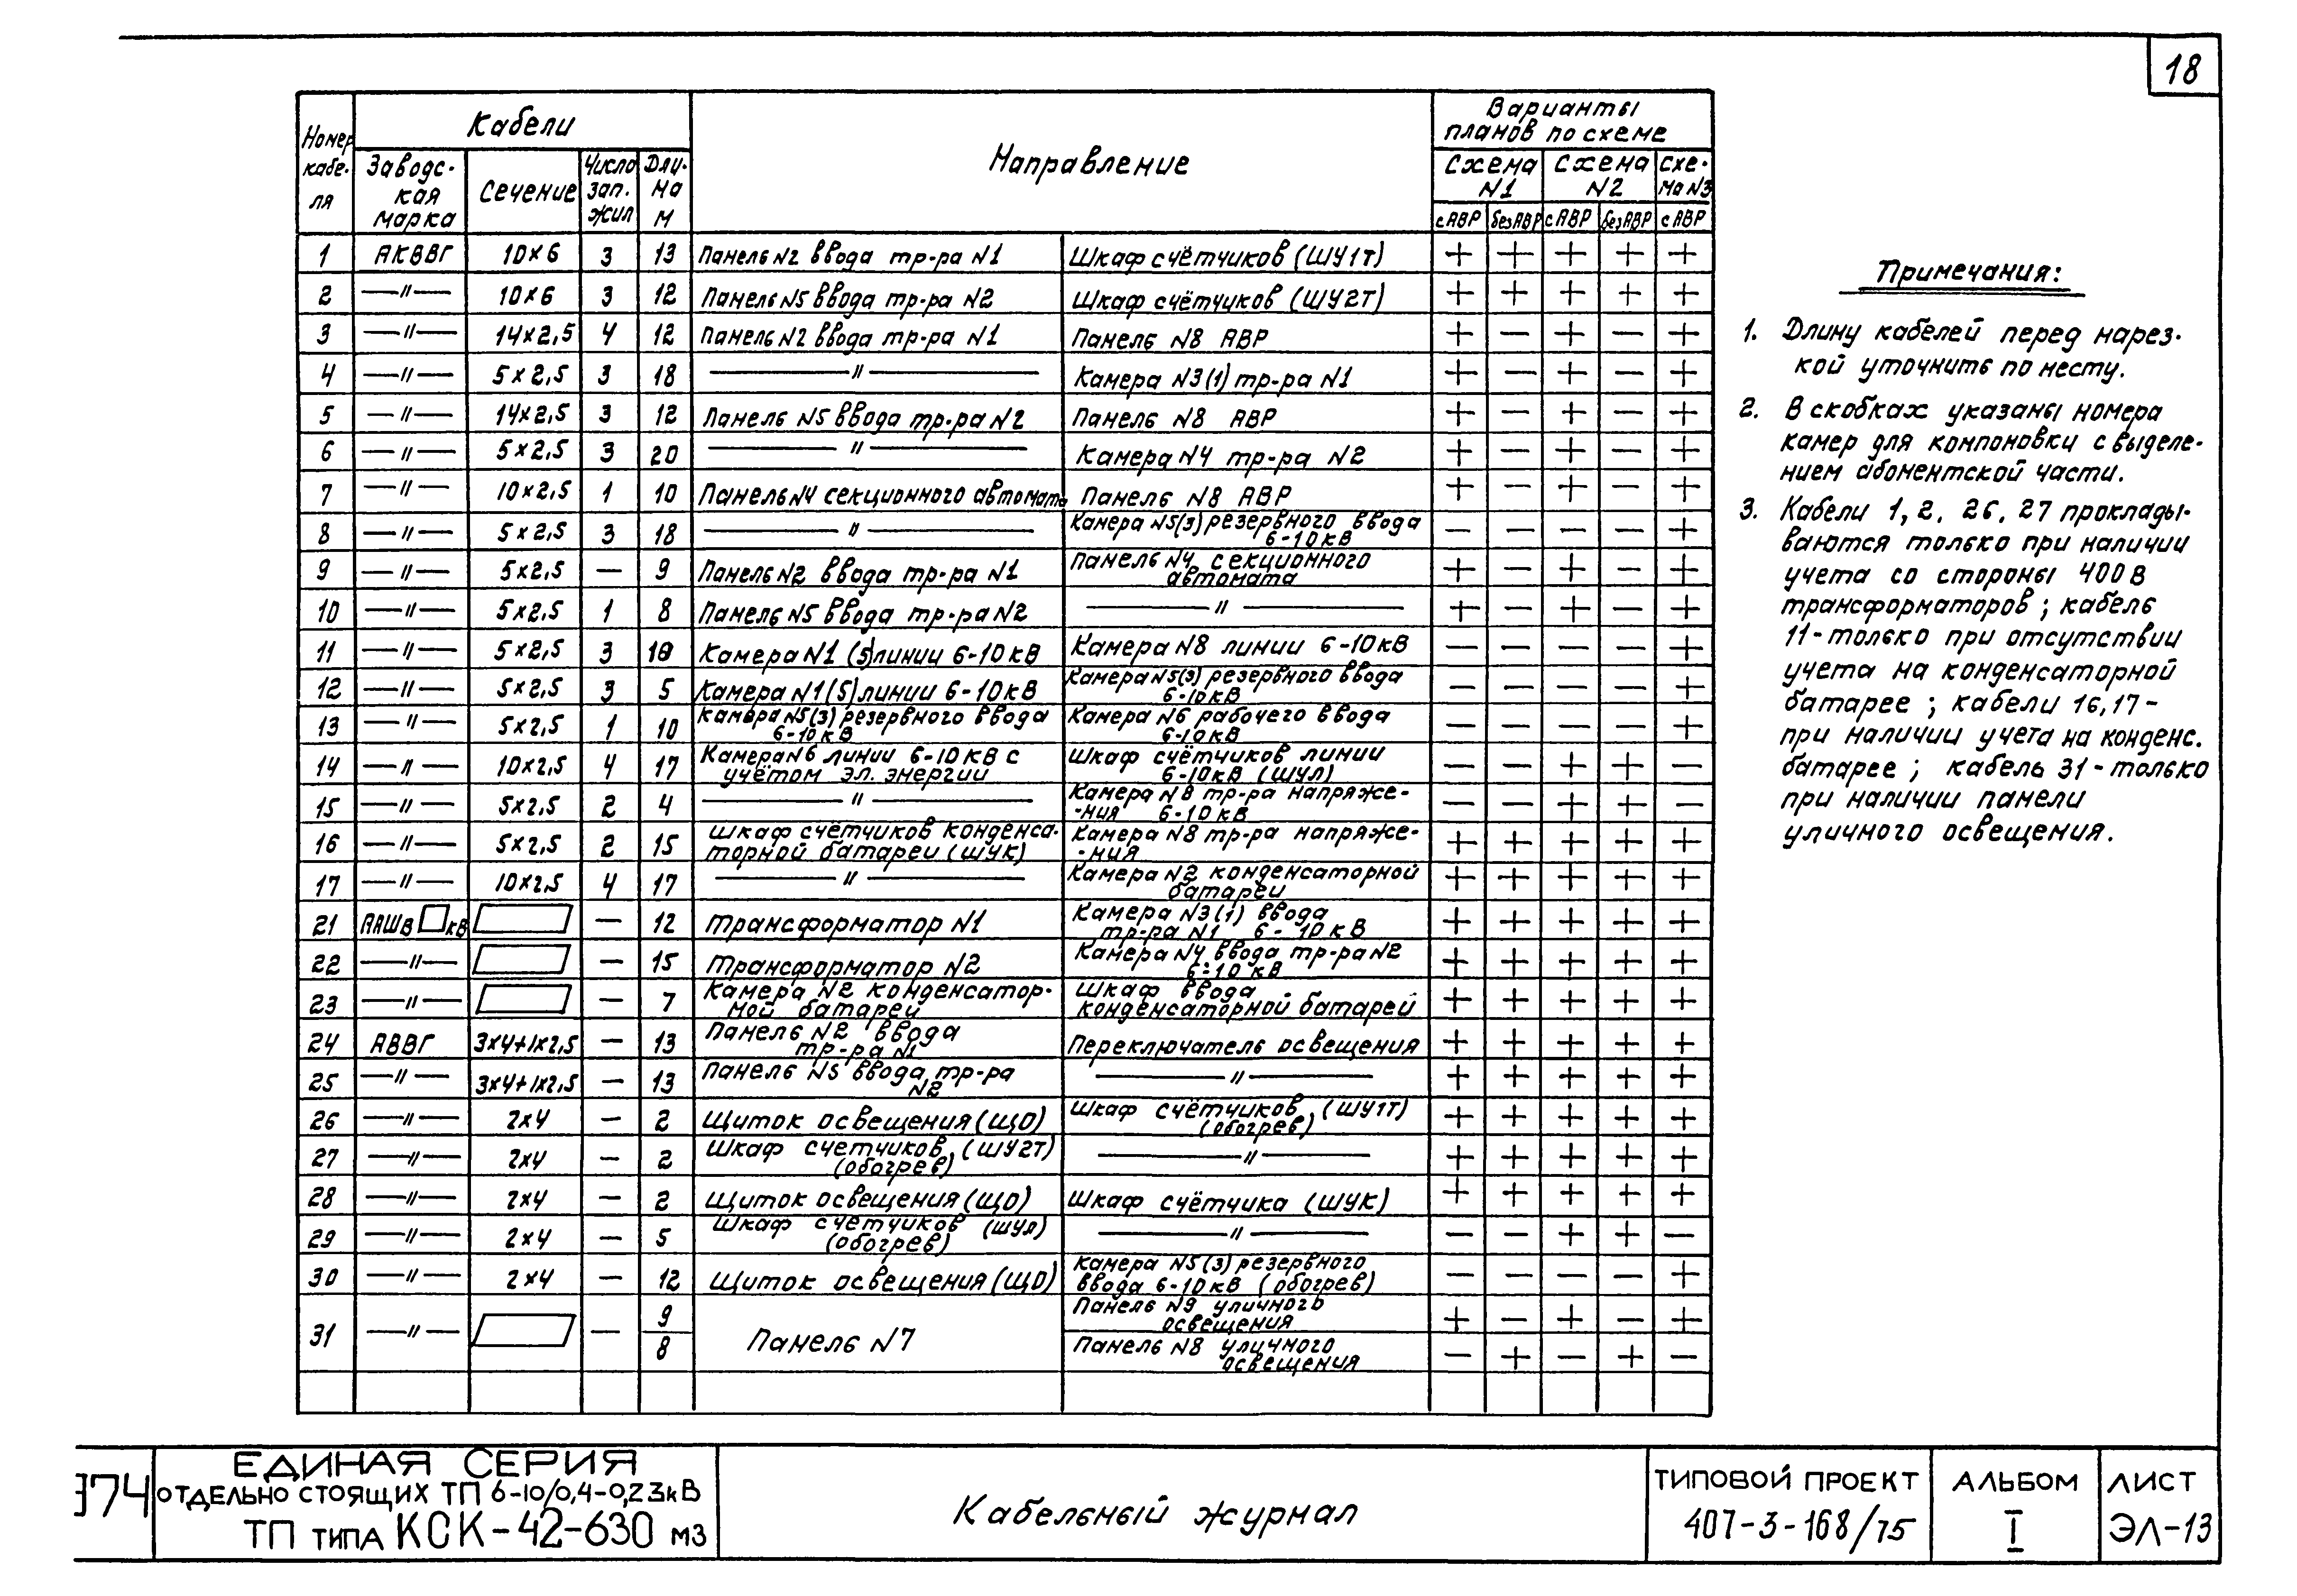 18
Номер кабеля | Кабели | Направление | Варианты планов по схеме
Заводская марка | Сечение | Число зап. жил | Длина м | Схема N1 | Схема N2 | Схема N3
с АВР | без АВР | с АВР | без АВР | с АВР
1 | АКВВГ | 10×6 | 3 | 13 | Панель N2 ввода тр-ра N1 | Шкаф счётчиков (ШУ1Т) | + | + | + | + | +
2 | —"— | 10×6 | 3 | 12 | Панель N5 ввода тр-ра N2 | Шкаф счётчиков (ШУ2Т) | + | + | + | + | +
3 | —"— | 14×2,5 | 4 | 12 | Панель N2 ввода тр-ра N1 | Панель N8 АВР | + | — | + | — | +
4 | —"— | 5×2,5 | 3 | 18 | —"— | Камера N3(1) тр-ра N1 | + | — | + | — | +
5 | —"— | 14×2,5 | 3 | 12 | Панель N5 ввода тр-ра N2 | Панель N8 АВР | + | — | + | — | +
6 | —"— | 5×2,5 | 3 | 20 | —"— | Камера N4 тр-ра N2 | + | — | + | — | +
7 | —"— | 10×2,5 | 1 | 10 | Панель N4 секционного автомата | Панель N8 АВР | + | — | + | — | +
8 | —"— | 5×2,5 | 3 | 18 | —"— | Камера N5(3) резервного ввода 6-10кВ | — | — | — | — | +
9 | —"— | 5×2,5 | — | 9 | Панель N2 ввода тр-ра N1 | Панель N4 секционного автомата | + | — | + | — | +
10 | —"— | 5×2,5 | 1 | 8 | Панель N5 ввода тр-ра N2 | —"— | + | — | + | — | +
11 | —"— | 5×2,5 | 3 | 10 | Камера N1 (5) линии 6-10кВ | Камера N8 линии 6-10кВ | — | — | — | — | +
12 | —"— | 5×2,5 | 3 | 5 | Камера N1(5) линии 6-10кВ | Камера N5(3) резервного ввода 6-10кВ | — | — | — | — | +
13 | —"— | 5×2,5 | 1 | 10 | Камера N5(3) резервного ввода 6-10кВ | Камера N6 рабочего ввода 6-10кВ | — | — | — | — | +
14 | —"— | 10×2,5 | 4 | 17 | Камера N6 линии 6-10кВ с учётом эл. энергии | Шкаф счётчиков линии 6-10кВ (ШУЛ) | — | — | + | + | —
15 | —"— | 5×2,5 | 2 | 4 | —"— | Камера N8 тр-ра напряже--ния 6-10кВ | — | — | + | + | —
16 | —"— | 5×2,5 | 2 | 15 | Шкаф счётчиков конденса-торной батареи (ШУК) | Камера N8 тр-ра напряже--ния | + | + | + | + | +
17 | —"— | 10×2,5 | 4 | 17 | —"— | Камера N2 конденсаторной батареи | + | + | + | + | +
21 | ААШв □кВ | | — | 12 | Трансформатор N1 | Камера N3(1) ввода тр-ра N1 6-10кВ | + | + | + | + | +
22 | —"— | | — | 15 | Трансформатор N2 | Камера N4 ввода тр-ра N2 6-10кВ | + | + | + | + | +
23 | —"— | | — | 7 | Камера N2 конденсатор-ной батареи | Шкаф ввода конденсаторной батарей | + | + | + | + | +
24 | АВВГ | 3×4+1×2,5 | — | 13 | Панель N2 ввода тр-ра N1 | Переключатель освещения | + | + | + | + | +
25 | —"— | 3×4+1×2,5 | — | 13 | Панель N5 ввода тр-ра N2 | —"— | + | + | + | + | +
26 | —"— | 2×4 | — | 2 | Щиток освещения (ЩО) | Шкаф счётчиков (ШУ1Т) (обогрев) | + | + | + | + | +
27 | —"— | 2×4 | — | 2 | Шкаф счетчиков (ШУ2Т) (обогрев) | —"— | + | + | + | + | +
28 | —"— | 2×4 | — | 2 | Щиток освещения (ЩО) | Шкаф счётчика (ШУК) | + | + | + | + | +
29 | —"— | 2×4 | — | 5 | Шкаф счётчиков (ШУЛ) (обогрев) | —"— | — | — | + | + | —
30 | —"— | 2×4 | — | 12 | Щиток освещения (ЩО) | Камера N5(3) резервного ввода 6-10кВ (обогрев) | — | — | — | — | +
31 | —"— | | — | 9 | Панель N7 | Панель N9 уличного освещения | + | — | + | — | +
8 | Панель N8 уличного освещения | — | + | — | + | —
Примечания:
1. Длину кабелей перед нарез-
кой уточнить по месту.
2. В скобках указаны номера
камер для компоновки с выделе-
нием абонентской части.
3. Кабели 1, 2, 26, 27 проклады-
ваются только при наличии
учета со стороны 400В
трансформаторов; кабель
11-только при отсутствии
учета на конденсаторной
батарее; кабели 16,17-
при наличии учета на конденс.
батарее; кабель 31-только
при наличии панели
уличного освещения.
974
ЕДИНАЯ СЕРИЯ
ОТДЕЛЬНО СТОЯЩИХ ТП 6-10/0,4-0,23кВ
ТП ТИПА КСК-42-630 м3
Кабельный журнал
ТИПОВОЙ ПРОЕКТ
407-3-168/75
АЛЬБОМ
I
ЛИСТ
ЭЛ-13